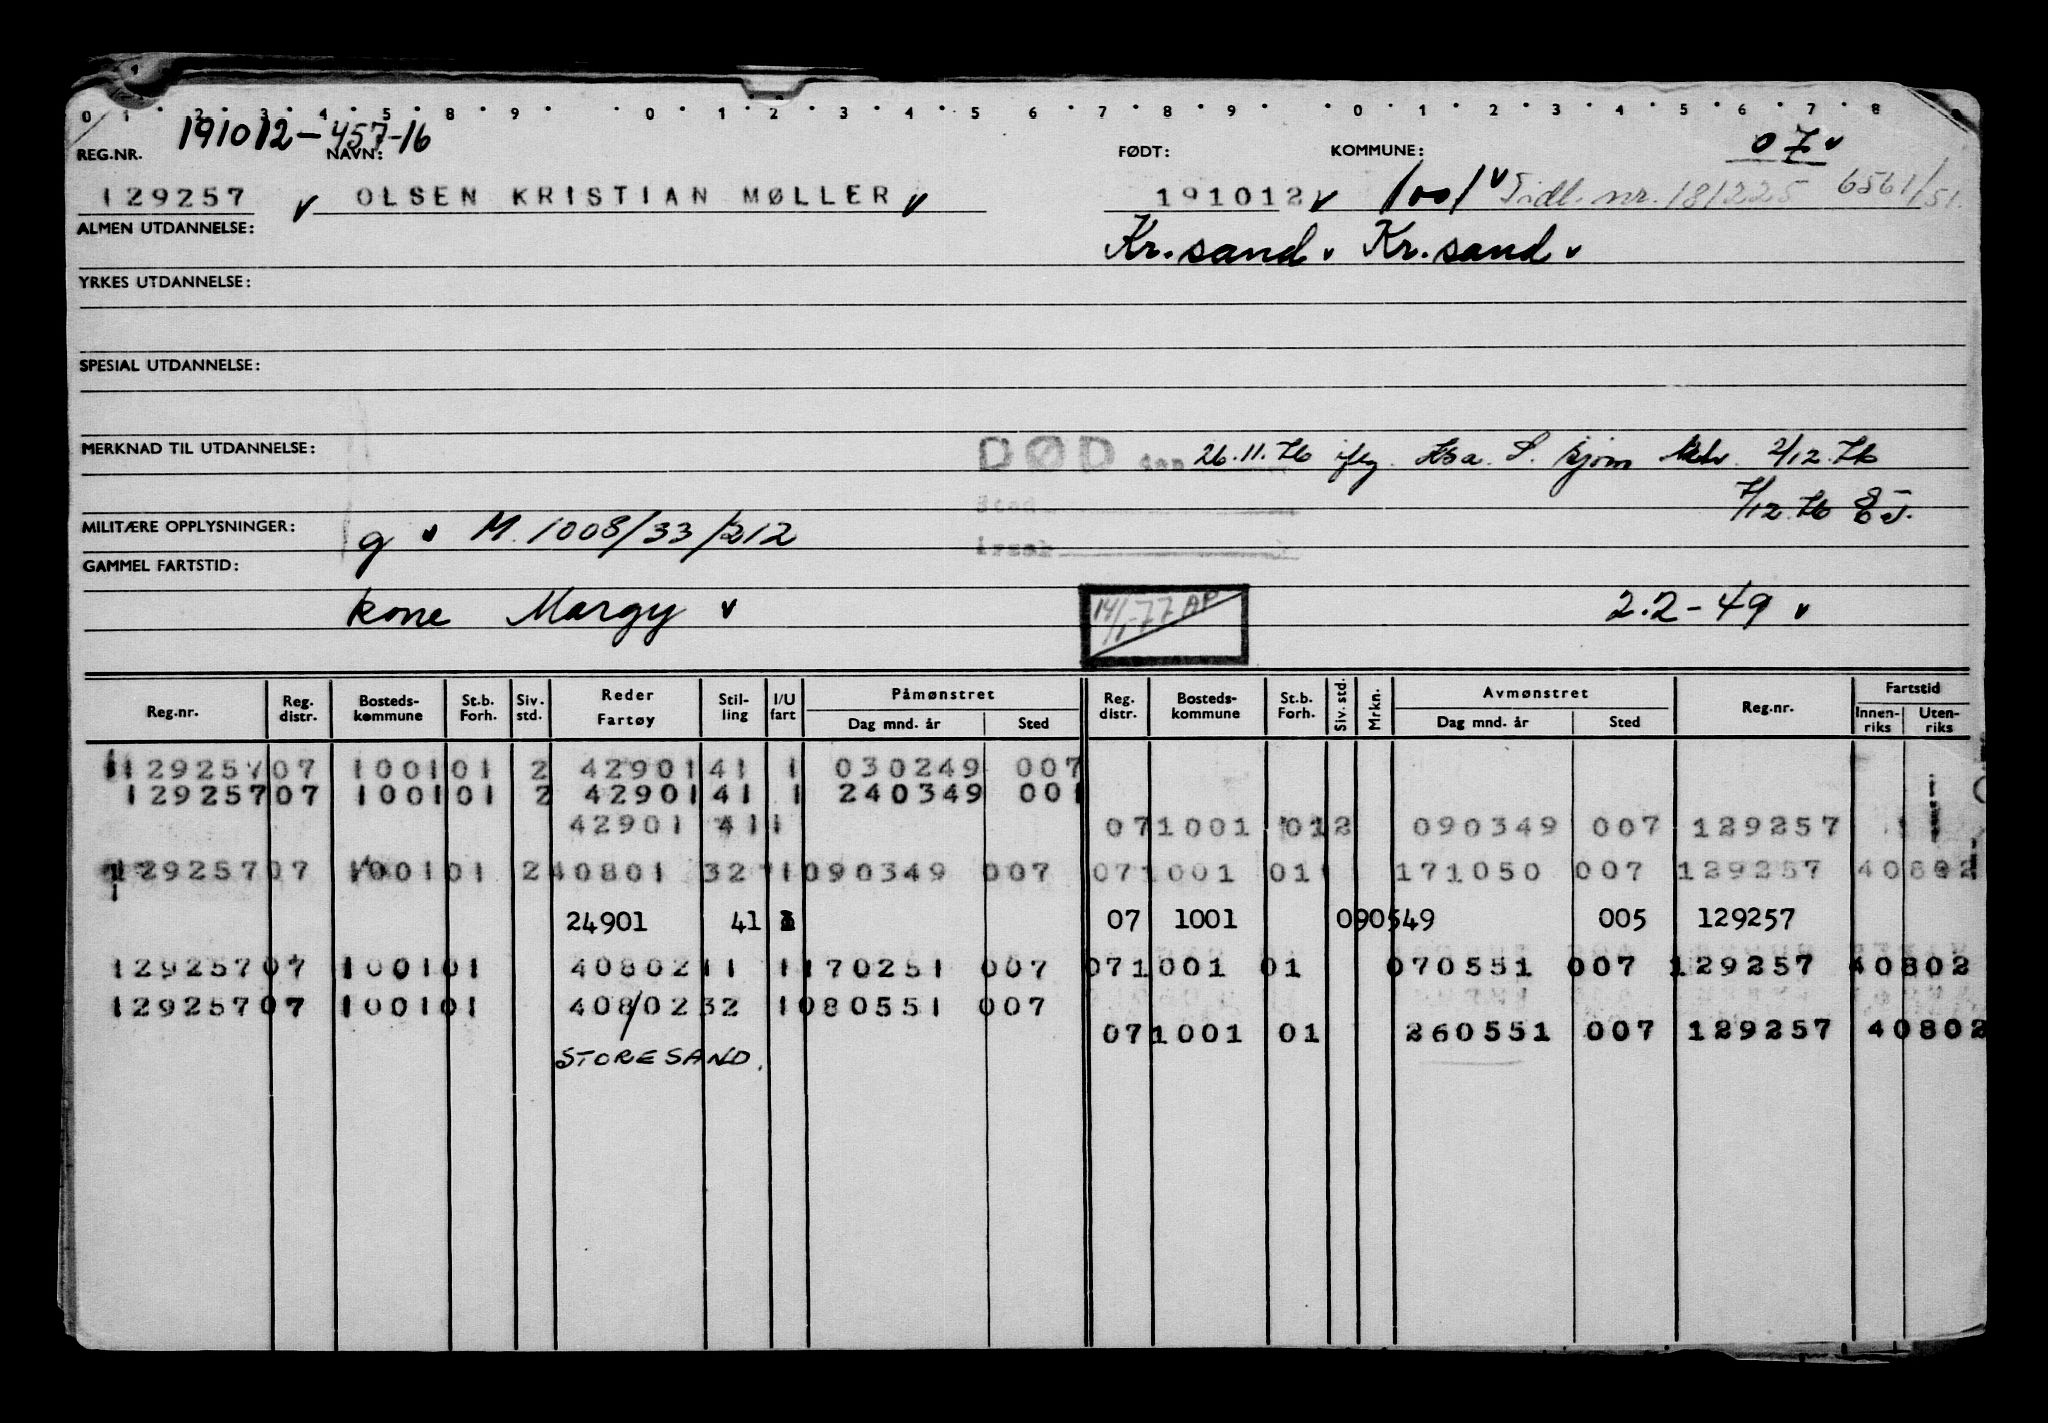 0 1 2 3 4 5 8 9 0 1 2 3 4 5 6 7 8 9 0 1 2 3 4 5 6 7 8 9
191012-457-16
07 v
REG.NR. NAVN: FØDT: KOMMUNE:
129257 v OLSEN KRISTIAN MØLLER v 191012 v 1001 v Tidl. nr. 181225 6561/51.
ALMEN UTDANNELSE: Kr.sand v Kr.sand v
YRKES UTDANNELSE:
SPESIAL UTDANNELSE:
MERKNAD TIL UTDANNELSE: DØD den 26.11.76 2/12.76
Sted 7/12.76
MILITÆRE OPPLYSNINGER: g v M. 1008/33/212
årsak
GAMMEL FARTSTID:
kone Margy v 14/1-77 AP 2.2-49 v
Reg.nr. Reg. distr. Bosteds-kommune St.b. Forh. Siv. std. Reder Fartøy Stil-ling I/U fart Påmønstret Dag mnd. år Sted Reg. distr. Bosteds-kommune St.b. Forh. Siv. std. Mrkn. Avmønstret Dag mnd. år Sted Reg.nr. Fartstid Innen-riks Uten-riks
129257 07 1001 01 2 42901 41 1 030249 007
129257 07 1001 01 2 42901 41 1 240349 001
42901 41 1 07 1001 01 2 090349 007 129257
129257 07 1001 01 2 40801 32 1 090349 007 07 1001 01 171050 007 129257 40802
24901 41 07 1001 090549 005 129257
129257 07 1001 01 40802 11 1 170251 007 07 1001 01 070551 007 129257 40802
129257 07 1001 01 408/02 32 1 080551 007
07 1001 01 260551 007 129257 40802
STORESAND.